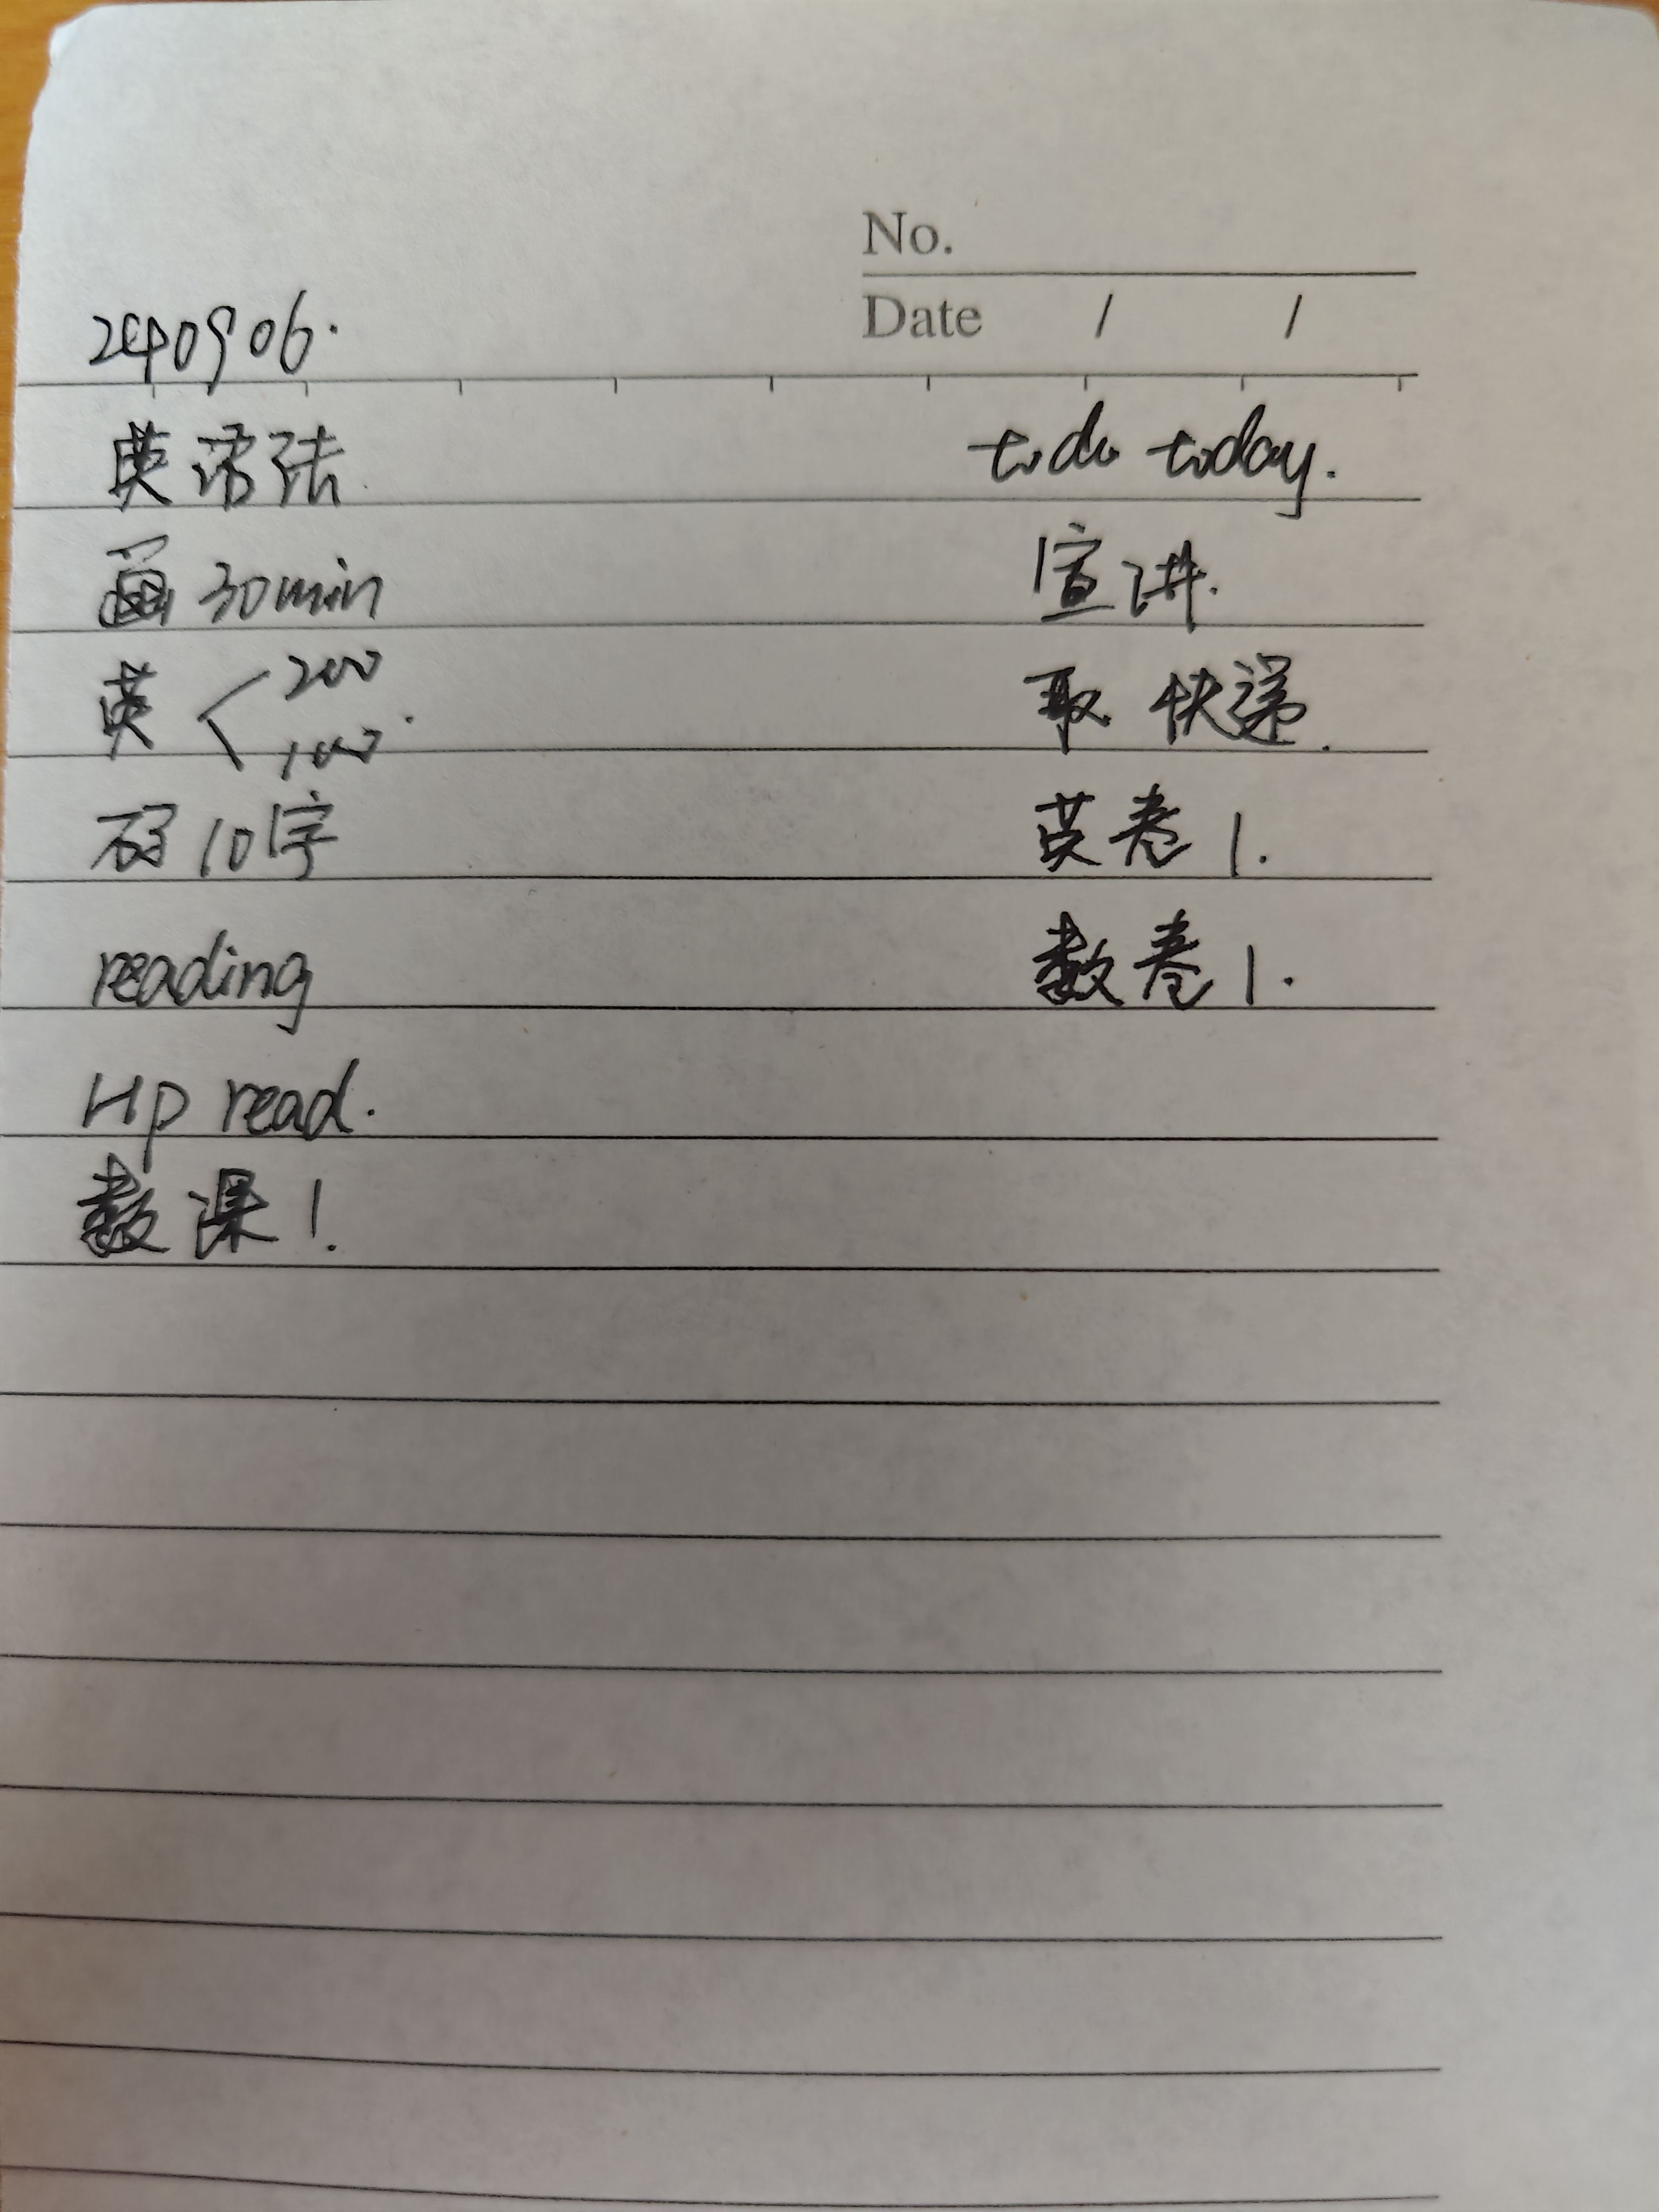 No.
Date / /
240906.
英语法
画30min
英 < 200
100.
码10字
reading
Hp read.
数课1.
to do today.
宣讲.
取快递.
英卷1.
数卷1.